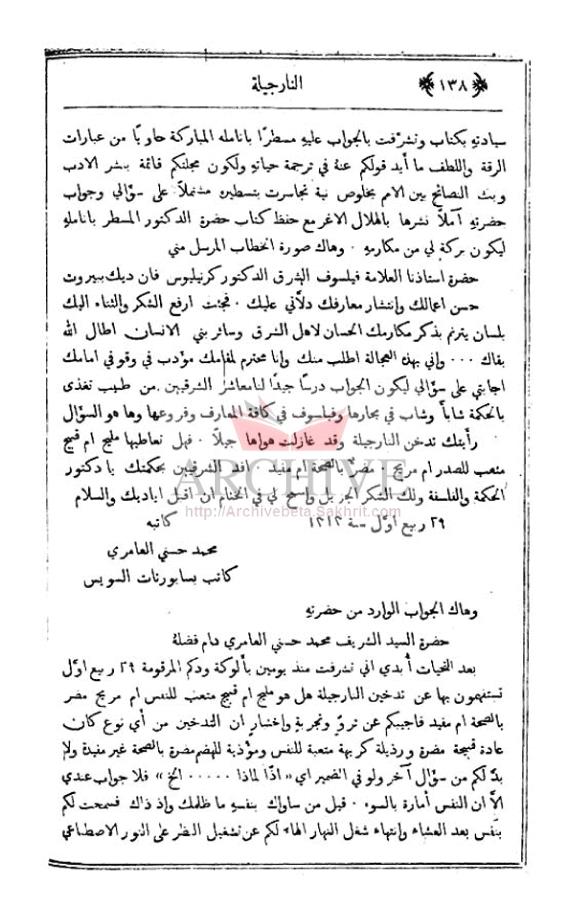 ﴿ ١٣٨ ﴾
النارجيلة
سيادته بكتاب وتشرفت بالجواب عليه مسطرًا بانامله المباركة حاويًا من عبارات
الرقة واللطف ما أيد قولكم عنه في ترجمة حياته ولكون مجلتكم قائمة بنشر الادب
وبث النصائح بين الامم بخلوص نية تجاسرت بتسطين مشتملًا على سؤالي وجواب
حضرته آملًا نشرها بالهلال الاغر مع حفظ كتاب حضرة الدكتور المسطر بانامله
ليكون بركة لي من مكارمه ٠ وهاك صورة الخطاب المرسل مني
حضرة استاذنا العلامة فيلسوف الشرق الدكتور كرنيليوس فان ديك ببيروت
حسن اعمالك وانتشار معارفك دلّاني عليك ٠ فجئت ارفع الشكر والثناء اليك
بلسان يترنم بذكر مكارمك الحسان لاهل الشرق وسائر بني الانسان اطال الله
بقاك ٠٠٠ واني بهذه العجالة اطلب منك وانا محترم لمقامك مؤدب في وقوفي امامك
اجابتي على سؤالي ليكون الجواب درسًا جيدًا لنا معاشر الشرقيين من طبيب تغذى
بالحكمة شابًا وشاب في بحارها وفيلسوف في كافة المعارف وفروعها وها هو السؤال
رأيتك تدخن النارجيلة وقد غازلت هواها جيلًا ٠ فهل تعاطيها مليح ام قبيح
متعب للصدر ام مريح ٠ مضرٌّ بالصحة ام مفيد ٠ افد الشرقيين بحكمتك يا دكتور
الحكمة والفلسفة ولك الشكر الجزيل واسمح لي في الختام ان اقبل اياديك والسلام
٢٩ ربيع اوّل سنة ١٣١٢ كاتبه
محمد حسني العامري
كاتب بسابورتات السويس
وهاك الجواب الوارد من حضرته
حضرة السيد الشريف محمد حسني العامري دام فضلهُ
بعد التحيات أبدي اني تشرفت منذ يومين بألوكة ودكم المرقومة ٢٩ ربيع اوّل
تستفهمون بها عن تدخين النارجيلة هل هو مليح ام قبيح متعب للنفس ام مريح مضر
بالصحة ام مفيد فاجيبكم عن تروٍّ وتجربة واختبار ان التدخين من أي نوع كان
عادة قبيحة مضرة ورذيلة كريهة متعبة للنفس ومؤذية للهضم مضرة بالصحة غير مفيدة ولا
بدّ لكم من سؤال آخر ولو في الضمير اي «اذًا لماذا ٠٠٠٠٠ الخ» فلا جواب عندي
الّا ان النفس أمارة بالسوء ٠ قيل من ساواك بنفسه ما ظلمك واذ ذاك فسمحت لكم
بنفس بعد العشاء وانتهاء شغل النهار الهاء لكم عن تشغيل النظر على النور الاصطناعي
ARCHIVE
http://Archivebeta.Sakhrit.com